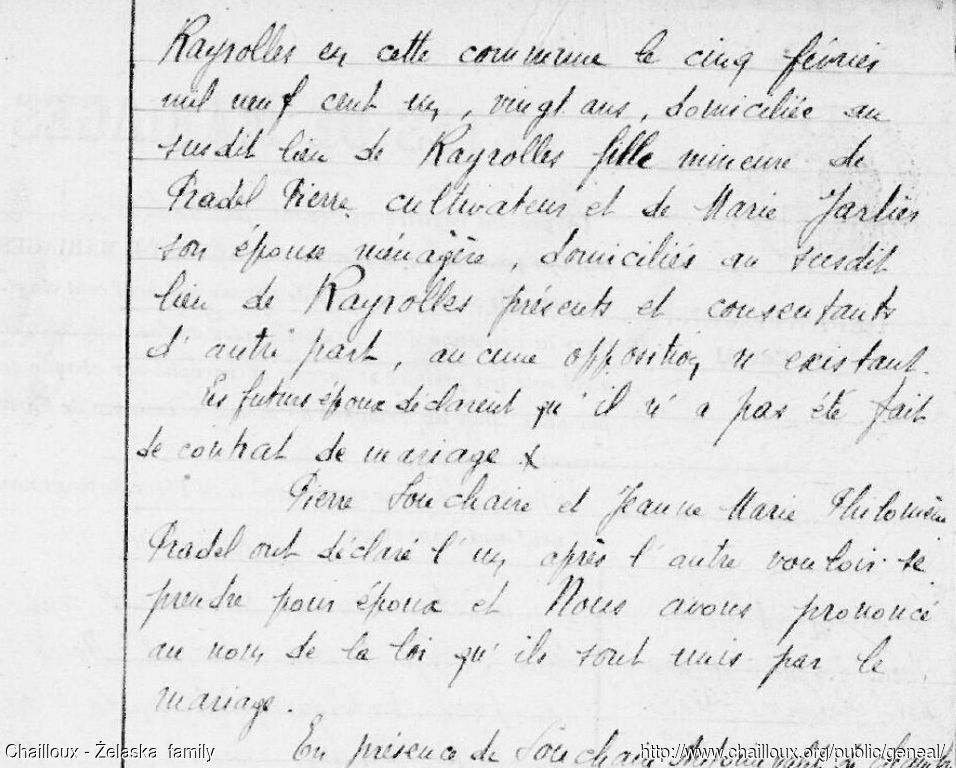 Rayrolles en cette commune le cinq février
mil neuf cent un, vingt ans, domiciliée au
susdit lieu de Rayrolles fille mineure de
Pradel Pierre cultivateur et de Marie Jarlier
son épouse ménagère, domiciliés au susdit
lieu de Rayrolles présents et consentants
d'autre part, aucune opposition n'existant.
Les futurs époux déclarent qu'il n'a pas été fait
de contrat de mariage x
Pierre Souchaire et Jeanne Marie Philomène
Pradel ont déclaré l'un après l'autre vouloir se
prendre pour époux et Nous avons prononcé
au nom de la loi qu'ils sont unis par le
mariage.
En présence de Souchaire Antoine
Chailloux - Želaska family
http://www.chailloux.org/public/geneal/